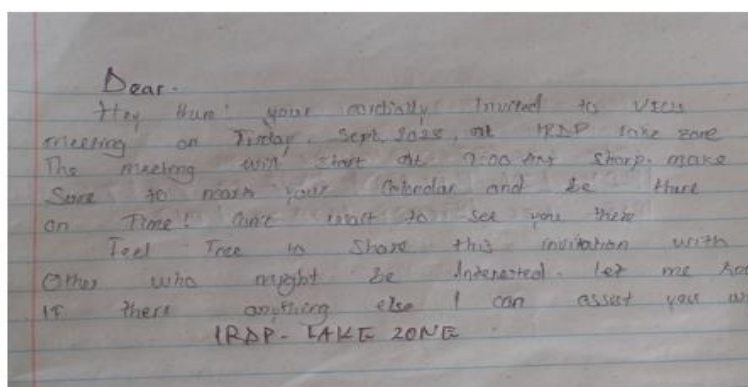 Dear.
Hey Hum! your cordially Invited to VICU
meeting on Friday, Sept, 2023, at IRDP lake zone
The meeting will start at 7:00 AM sharp. make
Sure to mark your Calendar and be there
on Time! can't wait to see you there
Feel Free to Share this invitation with
Other who might be Interested. let me
If there anything else I can assist you
IRDP- LAKE ZONE